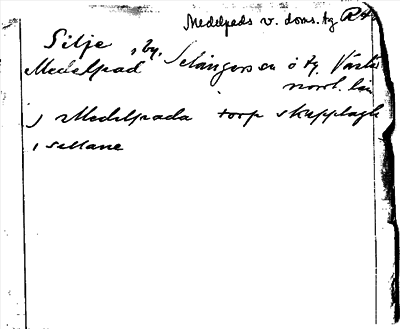 Medelpads v. doms. tg
Silje , by, Selångers sn o tg. Väster
Medelpad norrl. län
j Medelpada torp skepplagh
i sillane